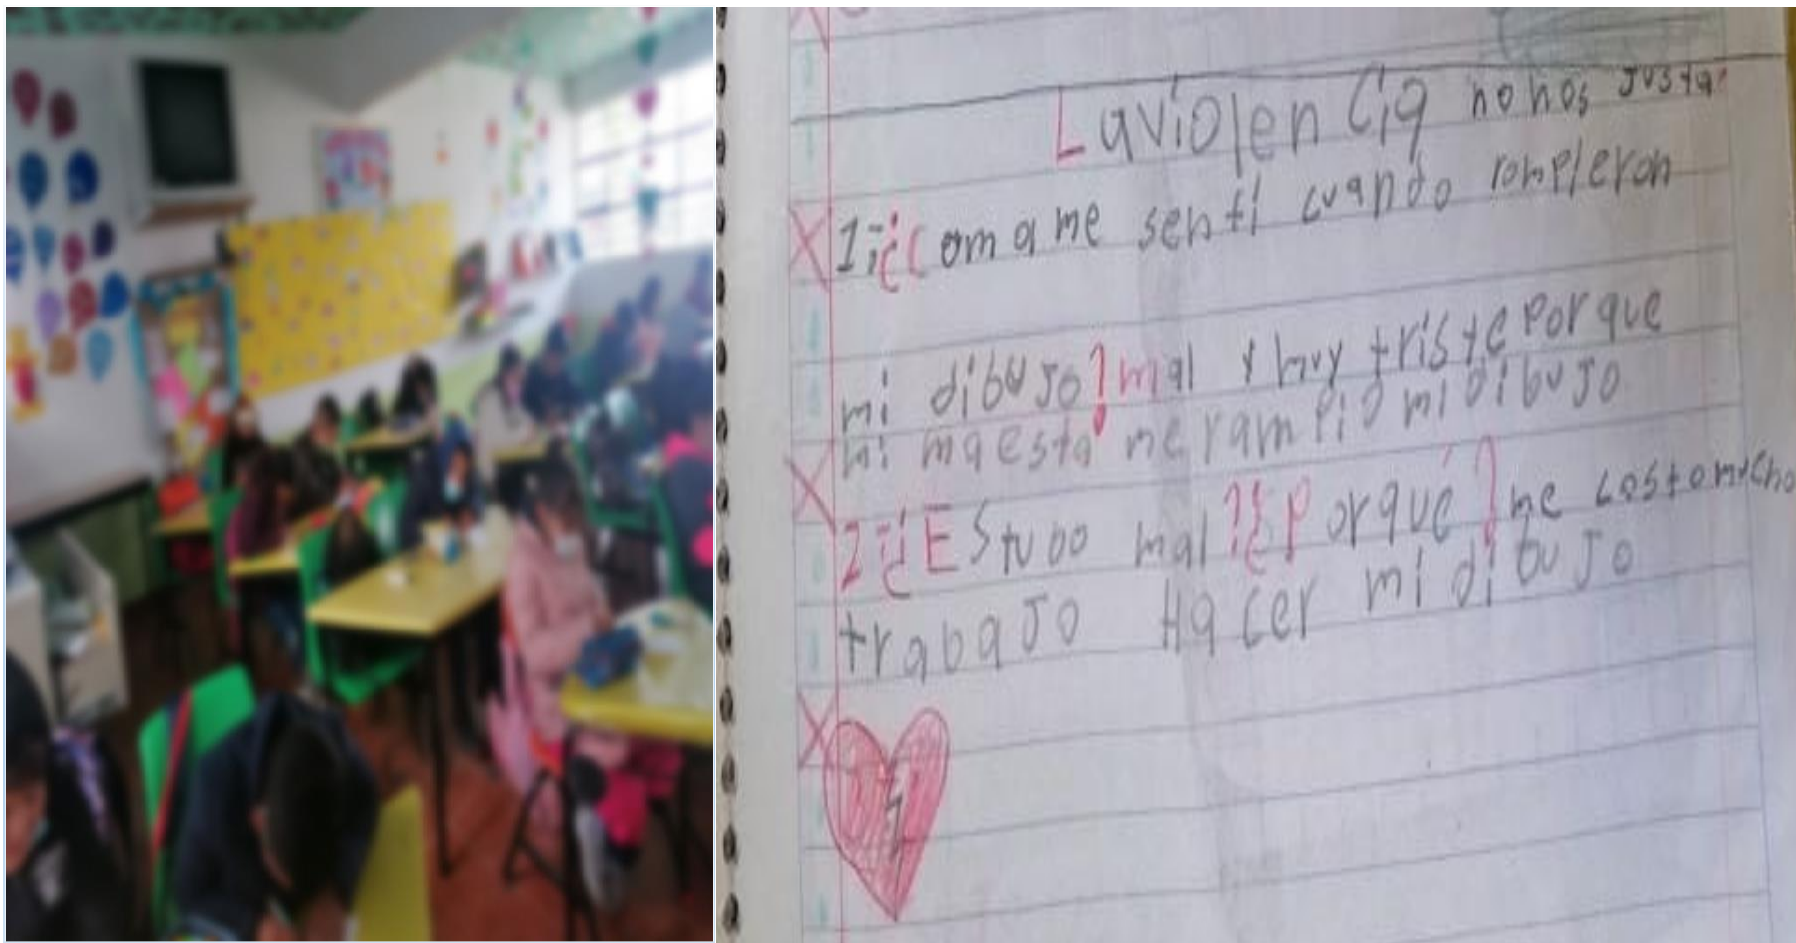 La violencia no nos justa
1¿¿Coma me senti cuando rompleron
mi dibujo? mal y muy triste porque
mi maesta me rampio mi dibujo
2¿¿Estubo mal?¿Porqué? me costo mucho
trabajo Hacer mi dibujo